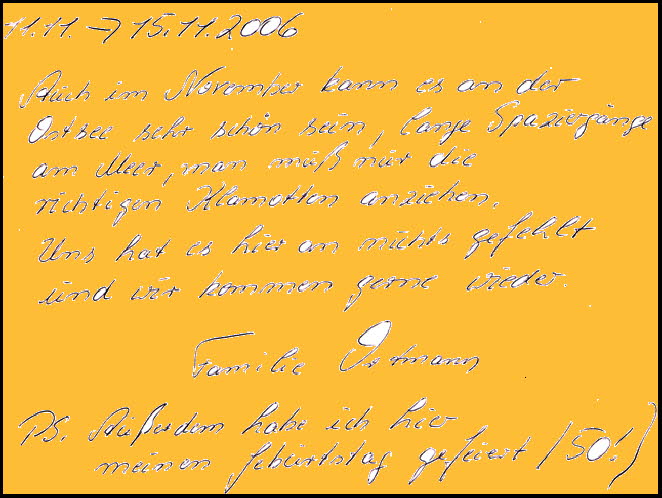 11.11. → 15.11.2006
Auch im November kann es an der
Ostsee sehr schön sein, lange Spaziergänge
am Meer, man muß nur die
richtigen Klamotten anziehen.
Uns hat es hier an nichts gefehlt
und wir kommen gerne wieder.
Familie Ortmann
PS. Außerdem habe ich hier
meinen Geburtstag gefeiert (50!)